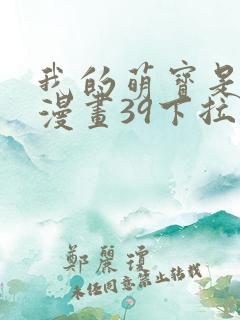 我的萌寶是
漫畫39下拉
鄭麗瓊
未经同意禁止转载